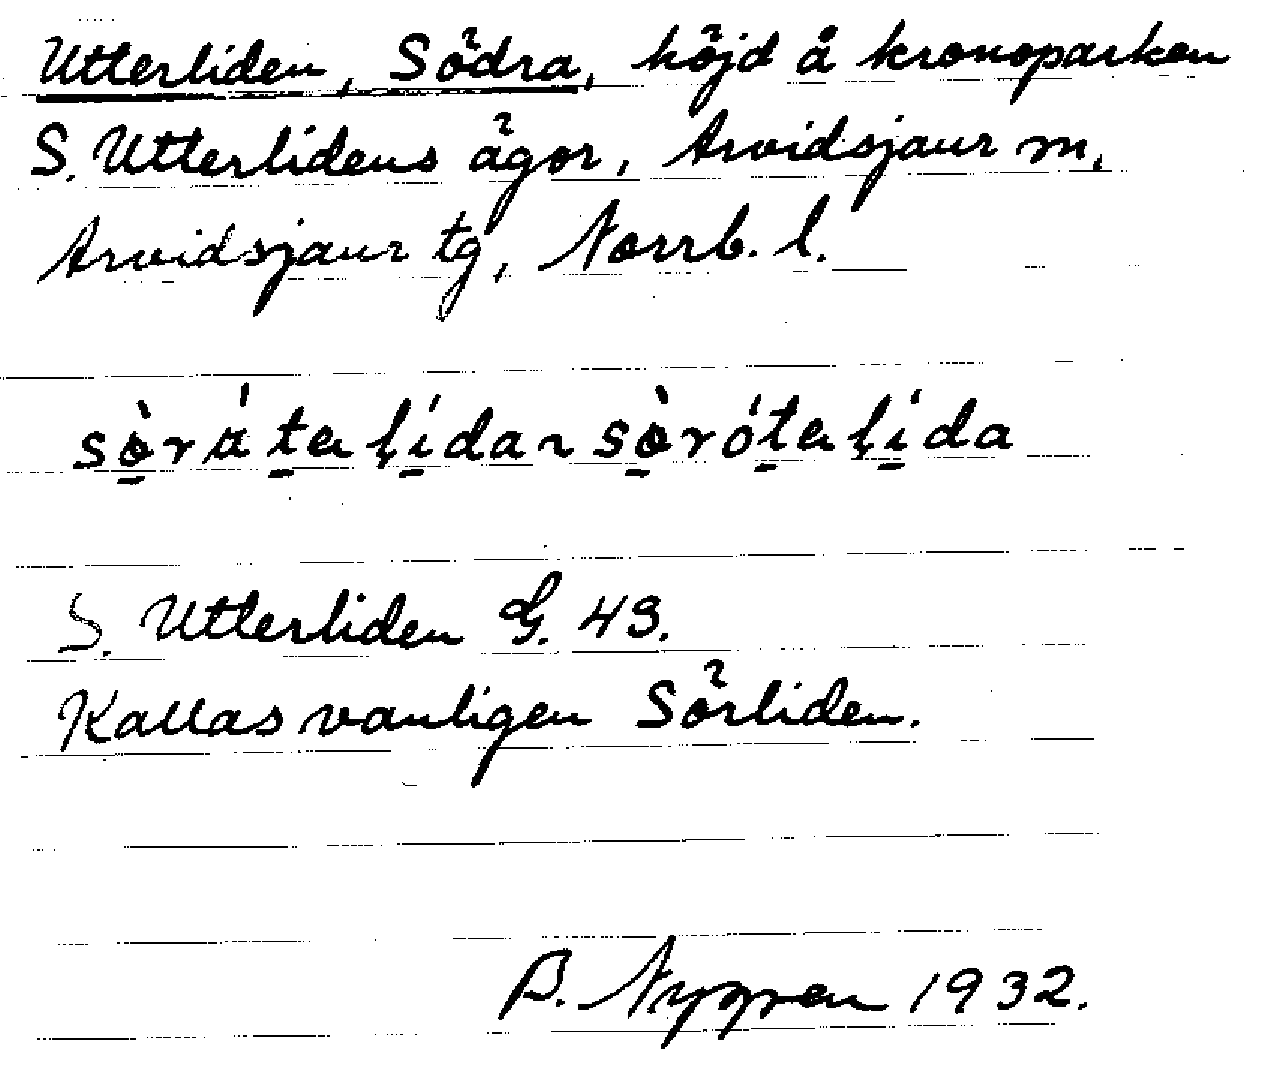 Utterliden, Södra, höjd å kronoparken
S. Utterlidens ägor, Arvidsjaur m,
Arvidsjaur tg, Norrb. l.
S. Utterliden G. 43.
Kallas vanligen Sörliden.
B. Nygren 1932.